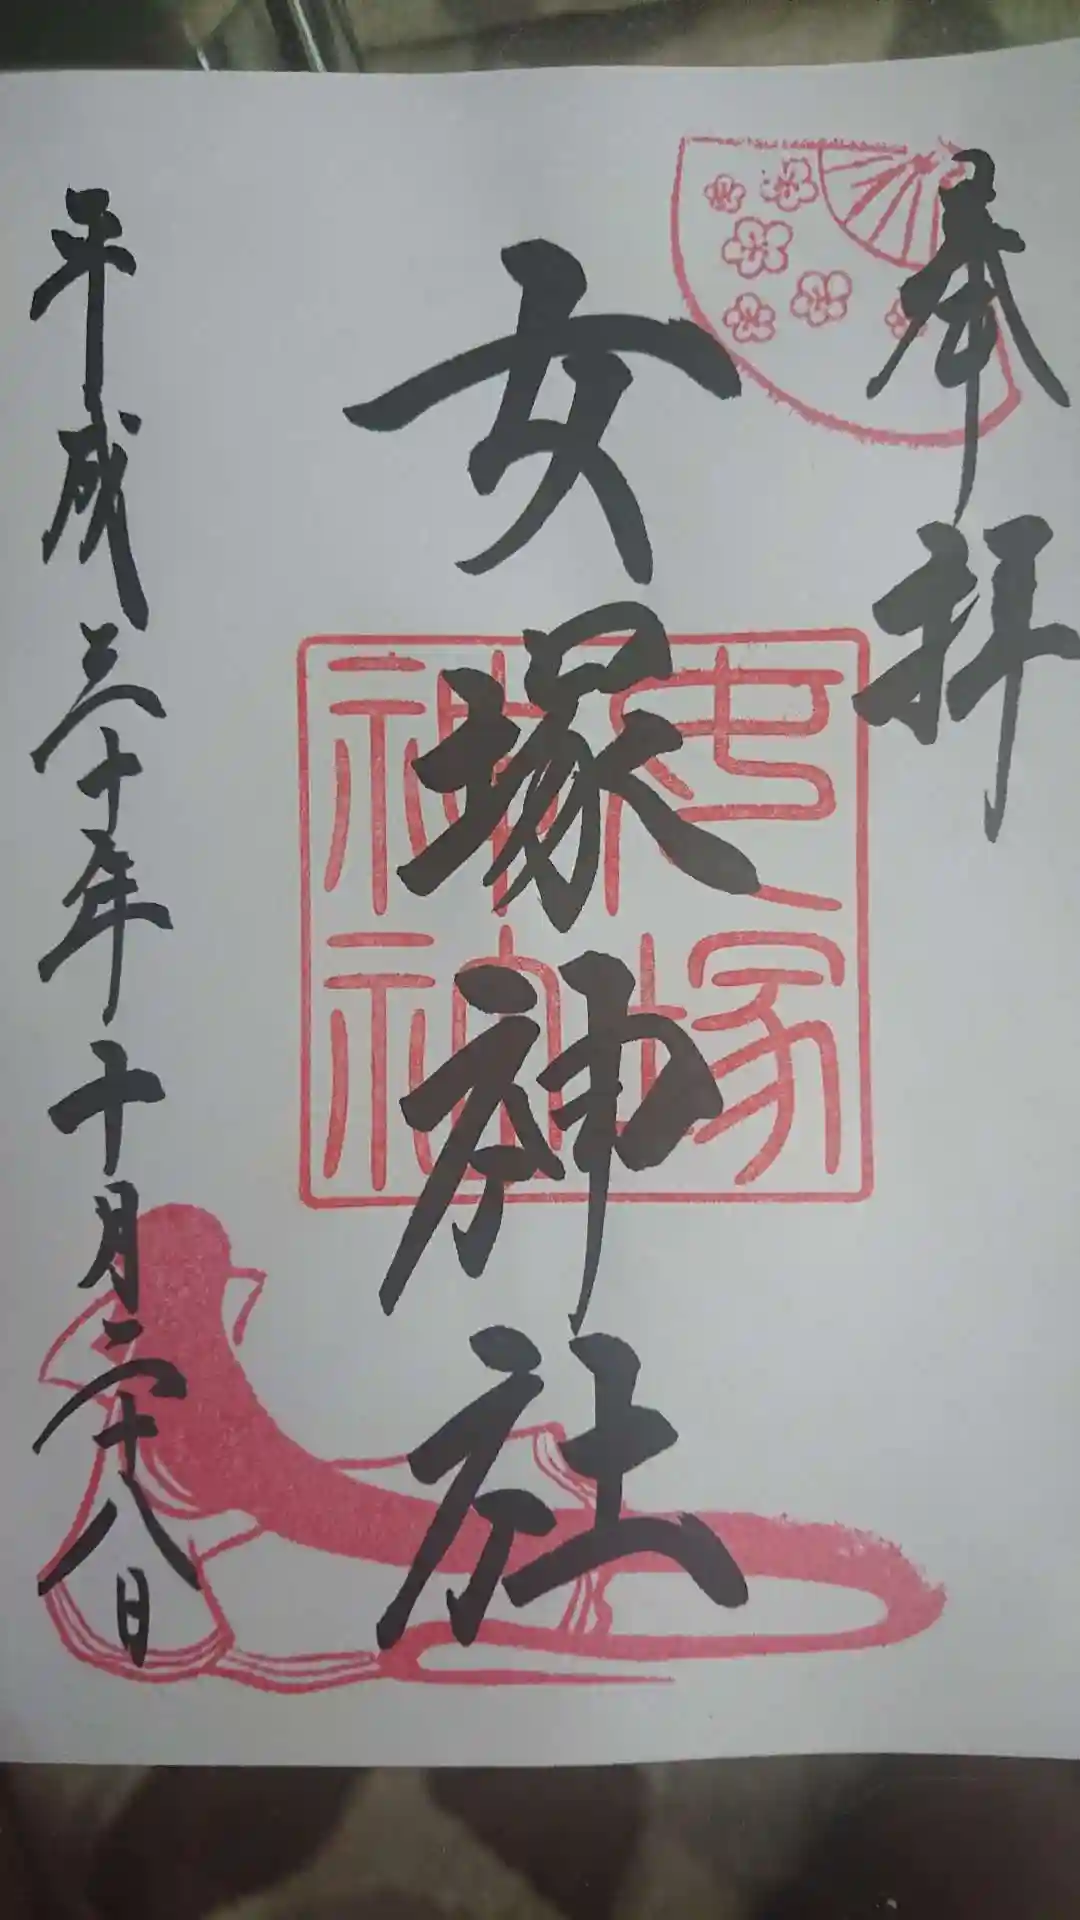 奉拝
女塚神社
女塚神社
平成三十年十月二十八日